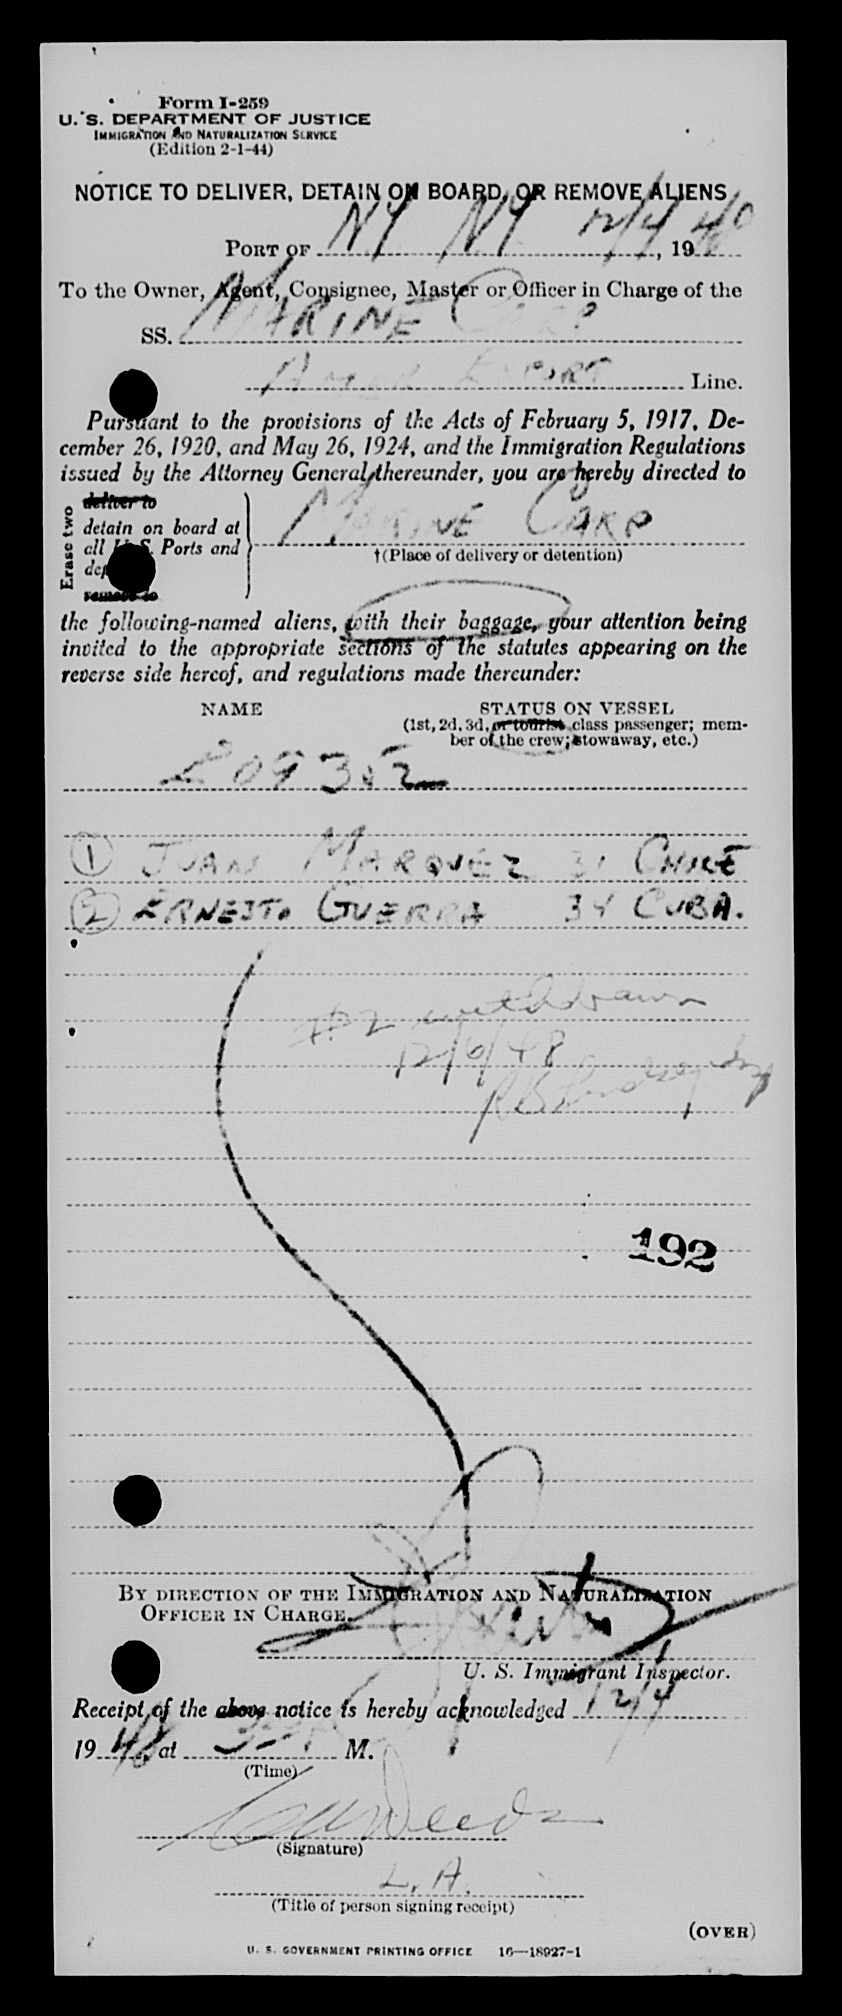 Form I-259
U. S. DEPARTMENT OF JUSTICE
IMMIGRATION AND NATURALIZATION SERVICE
(Edition 2-1-44)
NOTICE TO DELIVER, DETAIN ON BOARD, OR REMOVE ALIENS
PORT OF NY NY 12/4, 1948
To the Owner, Agent, Consignee, Master or Officer in Charge of the
SS. MARINE CARP
Amer EXPORT Line.
Pursuant to the provisions of the Acts of February 5, 1917, De-
cember 26, 1920, and May 26, 1924, and the Immigration Regulations
issued by the Attorney General thereunder, you are hereby directed to
Erase two
deliver to
detain on board at
all U. S. Ports and
remove to
MARINE CARP
†(Place of delivery or detention)
the following-named aliens, with their baggage, your attention being
invited to the appropriate sections of the statutes appearing on the
reverse side hereof, and regulations made thereunder:
NAME STATUS ON VESSEL
(1st, 2d, 3d, or tourist class passenger; mem-
ber of the crew; stowaway, etc.)
209352
1 JUAN MARQUEZ 31 CHILE
2 ERNESTO GUERRA 34 CUBA.
#2 withdrawn
12/6/48
192
BY DIRECTION OF THE IMMIGRATION AND NATURALIZATION
OFFICER IN CHARGE.
U. S. Immigrant Inspector.
Receipt of the above notice is hereby acknowledged 12/4
1948, at M.
(Time)
(Signature)
L. A.
(Title of person signing receipt)
(OVER)
U. S. GOVERNMENT PRINTING OFFICE 16—18927-1